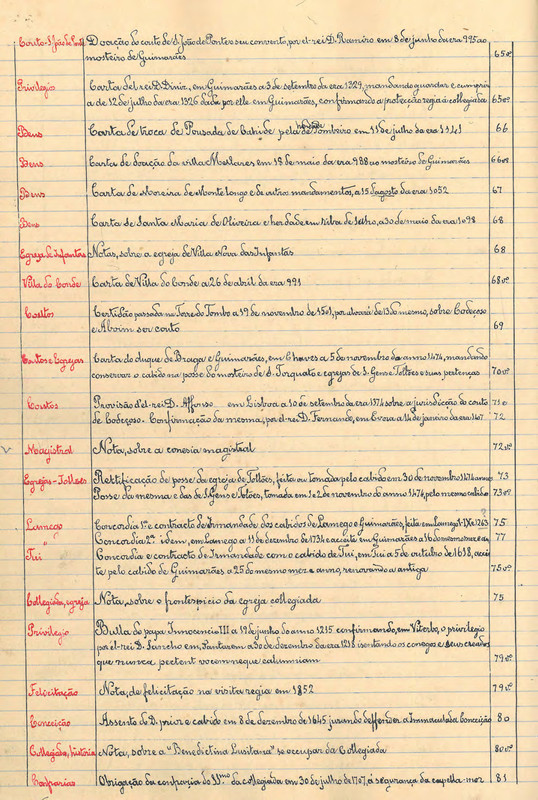 Couto-S. João de Ponte Doação do couto de S. João de Ponte e seu convento, por el-rei D. Ramiro em 8 de junho da era 995 ao
mosteiro de Guimarães 65vº
Privilegio Carta del rei D. Diniz, em Guimarães a 3 de setembro da era 1329, mandando guardar e cumprir
a de 12 de julho da era 1326 dada por elle em Guimarães, confirmando a protecção regia á collegiada 65vº
Bens Carta de troca de Pousada de Cahide pela de Pombeiro em 11 de julho da era 1141 66
Bens Carta de doação da villa Mellares em 18 de maio da era 988 ao mosteiro de Guimarães 66vº
Bens Carta de Moreira de Monte longo e de outros mandamentos, a 15 d'agosto da era 1052 67
Bens Carta de Santa Maria de Oliveira e herdade em Silva de Selho, a 30 de maio da era 1098 68
Egreja de Infantas Notas, sobre a egreja de Villa Nova das Infantas 68
Villa do Conde Carta de Villa do Conde a 26 de abril da era 991 68vº
Coutos Certidão passada na Torre do Tombo a 19 de novembro de 1501, por alvará de 13 do mesmo, sobre Codeçoso
e Aboim ser couto 69
Coutos e Egrejas Carta do duque de Braga e Guimarães, em Chaves a 5 de novembro do anno 1474, mandando
conservar o cabido na posse do mosteiro de S. Torquato e egrejas de S. Gens e Tolões e suas pertenças 70vº
Coutos Provisão d'el-rei D. Affonso em Lisboa a 10 de setembro da era 1374 sobre a jurisdicção do couto 71
de Codeçoso. Confirmação da mesma, por el-rei D. Fernando, em Evora a 14 de janeiro da era 1407 72
Magistral Nota, sobre a conesia magistral 72vº
Egrejas-Tollões Rectificação de posse da egreja de Tolões, feita ou tomada pelo cabido em 30 de novembro 1474 anno 73
Posse da mesma e das de S. Gens e Tolões, tomada em 1 e 2 de novembro do anno 1474, pelo mesmo cabido 73vº
Lamego Concordia 1ª e contracto de Irmandade dos cabidos de Lamego e Guimarães, feita em Lamego 75
" Concordia 2ª idem, em Lamego a 11 de dezembro de 1734 e acceite em Guimarães a 16 do mesmo mez e an. 77
Tui Concordia e contracto de Irmandade com o cabido de Tui, em Tui a 5 de outubro de 1618, accei
te pelo cabido de Guimarães a 25 do mesmo mez e anno, renovando a antiga 75vº
Collegiada, egreja Nota, sobre o frontespicio da egreja collegiada 75
Privilegio Bulla do papa Innocencio III a 19 de junho do anno 1215 confirmando, em Viterbo, o privilegio
por el-rei D. Sancho em Santarem a 30 de dezembro da era 1218 isentando os conegos e seus creados
que nunca pectent vocem neque calumniam 79vº
Felicitação Nota, de felicitação na visita regia em 1852 79vº
Conceição Assento do D. prior e cabido em 8 de dezembro de 1645 jurando deffender a Immaculada Conceição 80
Collegiada, historia Nota, sobre a "Benedictina Lusitana" se occupar da Collegiada 80vº
Confrarias Obrigação da confraria do SS.mo da collegiada em 30 de julho de 1707, á segurança da capella-mór 81